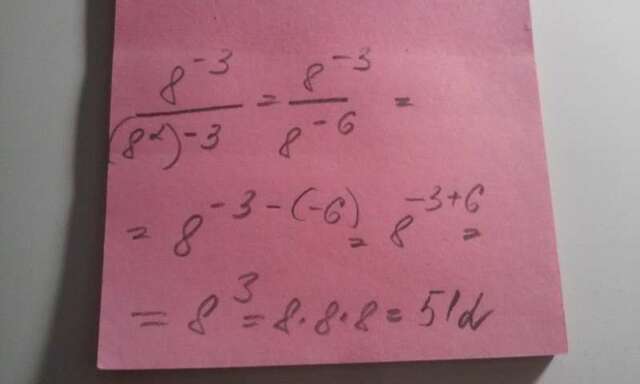 8^-3/(8^2)^-3 = 8^-3/8^-6 =
= 8^-3-(-6) = 8^-3+6 =
= 8^3 = 8·8·8 = 512